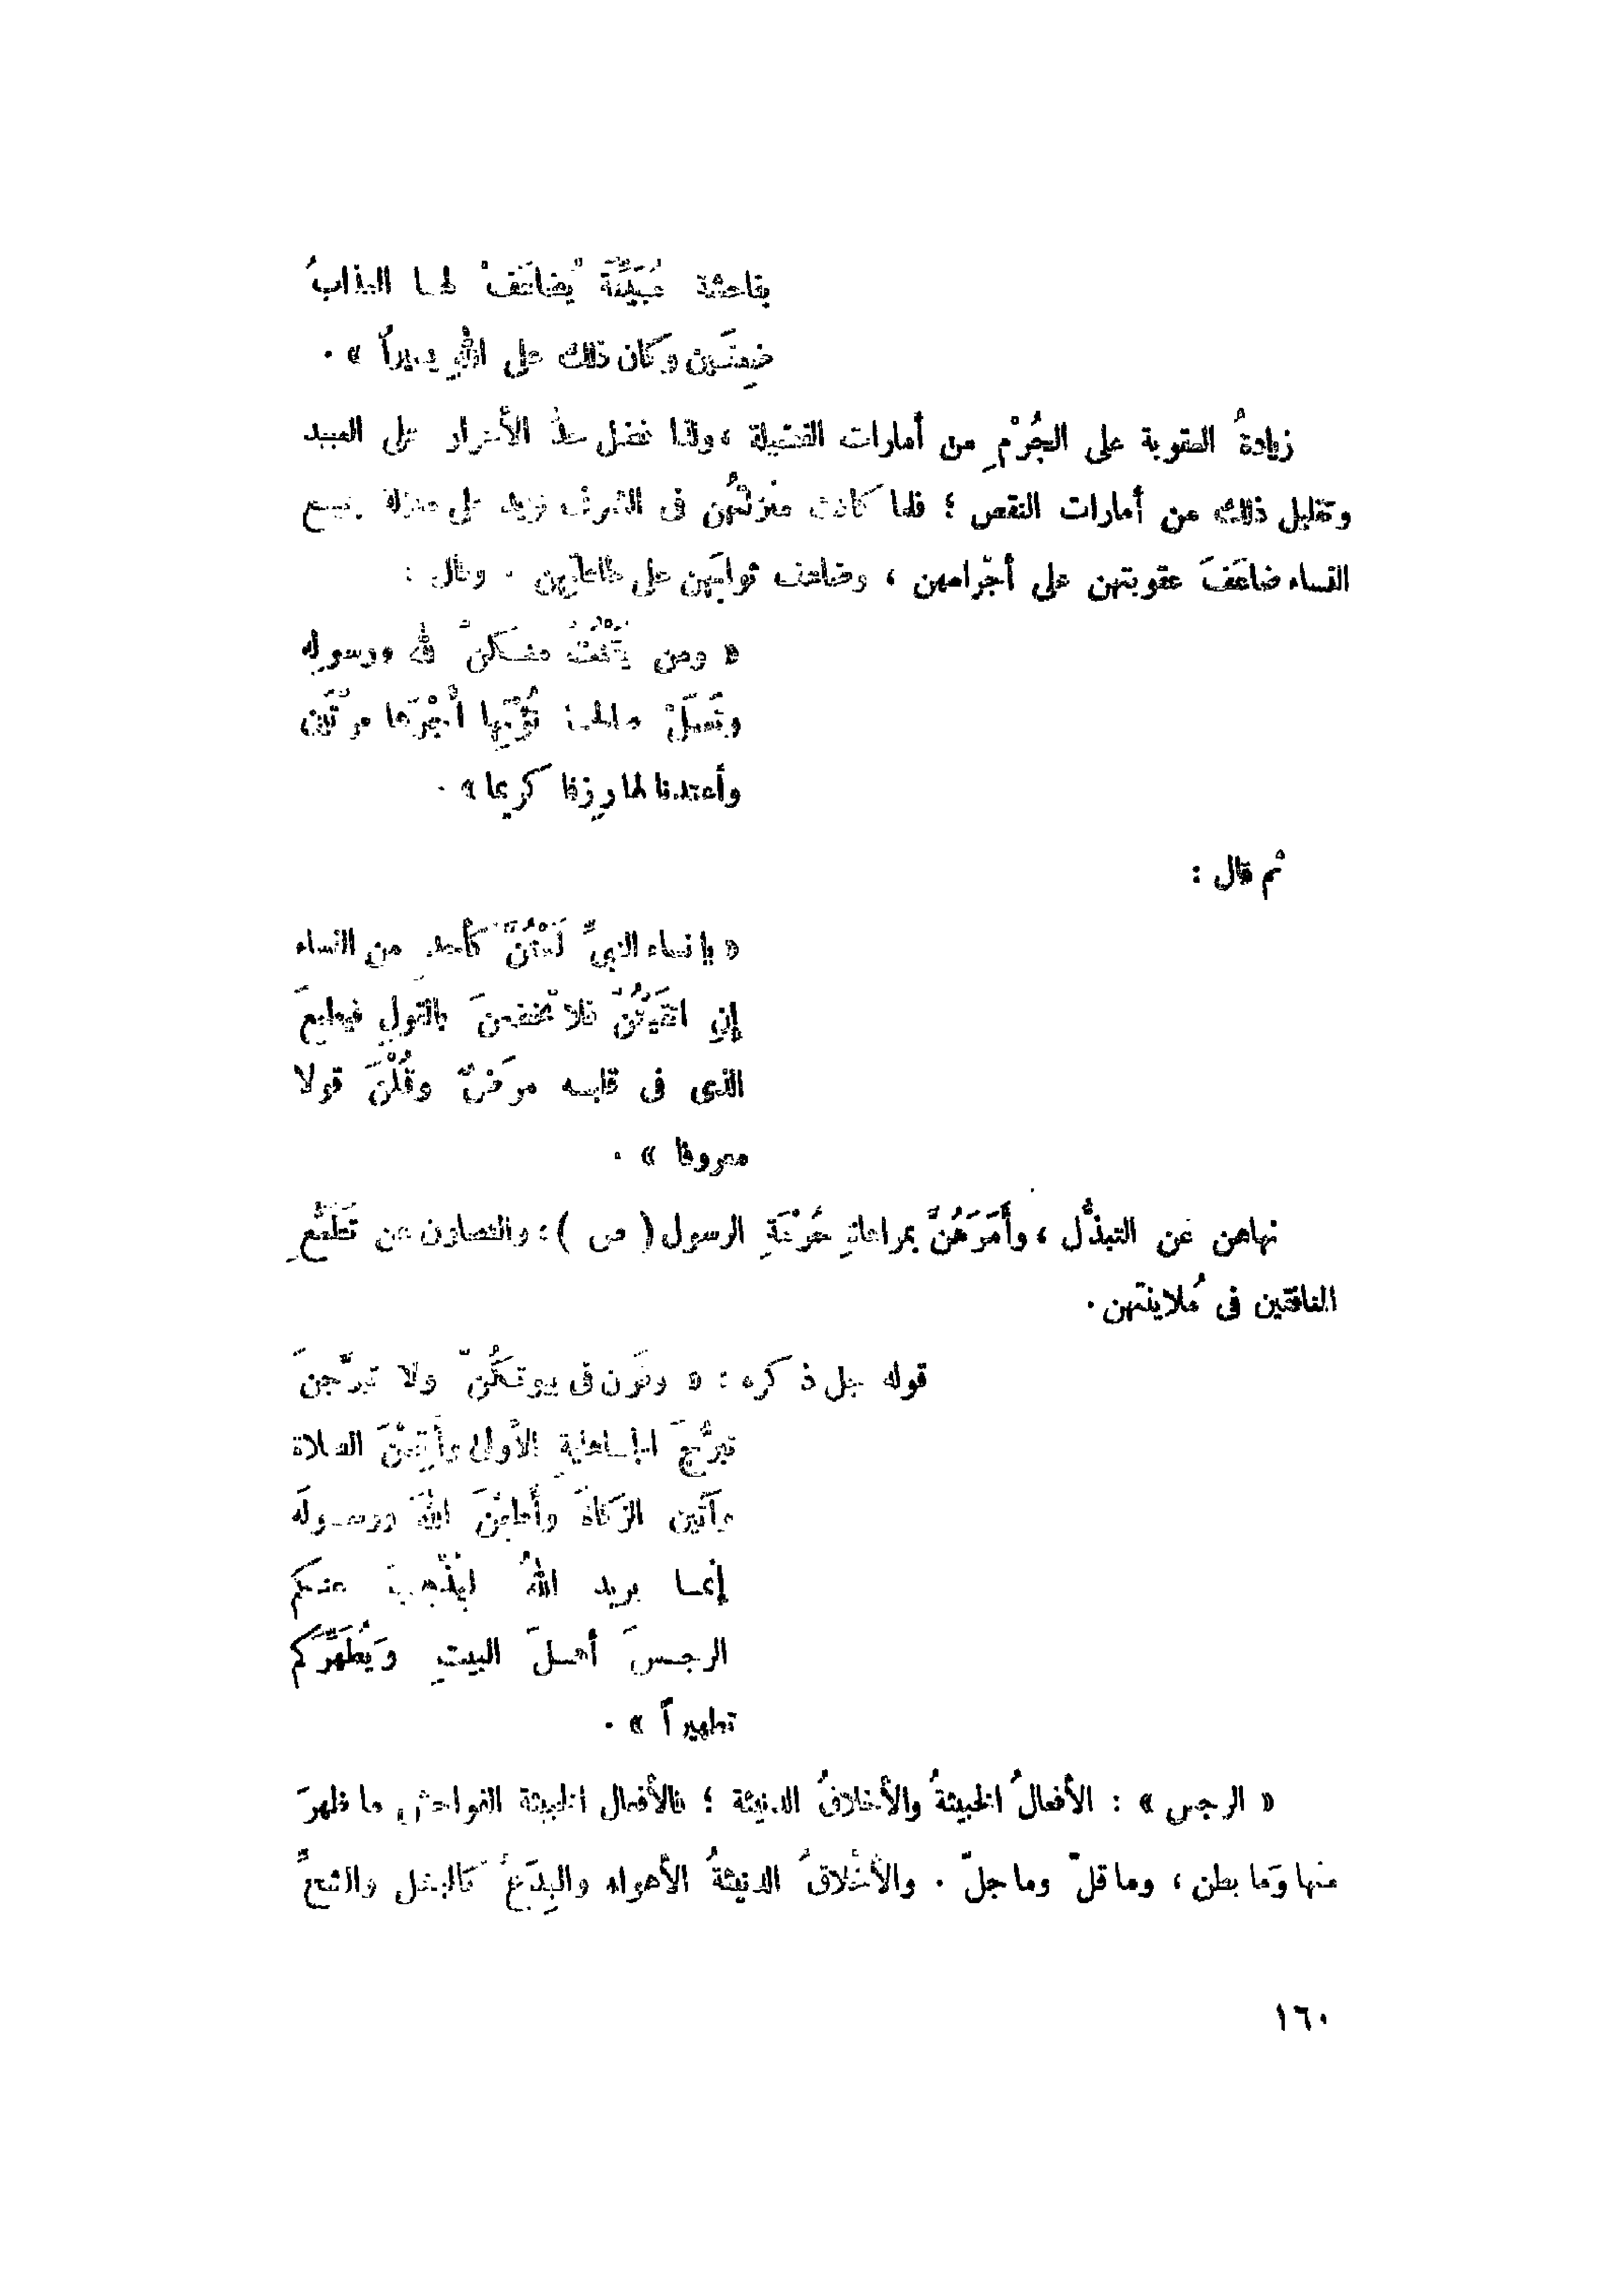 بفاحشة مُبَيِّنَةٍ يُضاعَفْ لهـا العذابُ
ضِعفَـيْن وكان ذلك على اللهِ يسيراً » .
زيادةُ العقوبة على الجُرْمِ من أمارات الفضيلة ، ولذا فضل حدُّ الأحرار على العبيد
وتقليل ذلك من أمارات النقص ؛ فلما كانت منزلتُهن فى الشرف تزيد على منزلة جميع
النساء ضاعَفَ عقوبتهن على أجْرامهن ، وضاعف ثوابَهن على طاعاتهن . وقال :
« ومن يَقْنُتْ منـكنَّ لله ورسولِه
وتَعملْ صالحاً نُؤْتِها أَجْرَها مرَّتَين
وأعتدنا لها رِزقا كريما » .
ثم قال :
« يا نساء النبيِّ لَسْتُنَّ كأحدٍ من النساء
إنِ اتَّقَيْتُنَّ فلا تخضعنَ بالقولِ فيطمعَ
الذى فى قلبـه مرَضٌ وقُلْنَ قولا
معروفا » .
نهاهن عن التبذُّل ، وأَمَرَهُنَّ بمراعاةِ حُرْمَةِ الرسول ( ص ) ؛ والتصاون عن تَطَمُّعِ
المنافقين فى مُلاينتهن .
قوله جل ذكره : « وقَرْن فى بيوتـكُنَّ ولا تبرَّجنَ
تبرُّجَ الجـاهليةِ الأولى وأَقِمْنَ الصلاة
وآتين الزكاةَ وأَطِعْنَ اللهَ ورسـولَه
إنمـا يريد اللهُ ليُذْهِبَ عنـكم
الرجـسَ أهـلَ البيتِ ويُطَهِّرَكم
تطهيراً » .
« الرجس » : الأفعالُ الخبيثةُ والأخلاقُ الدنيئة ؛ فالأفعال الخبيثة الفواحش ما ظهرَ
منها وَما بطن ، وما قلّ وما جلّ . والأخْلاقُ الدنيئةُ الأهواء والبِدَعُ كالبخل والشحِّ
١٦٠